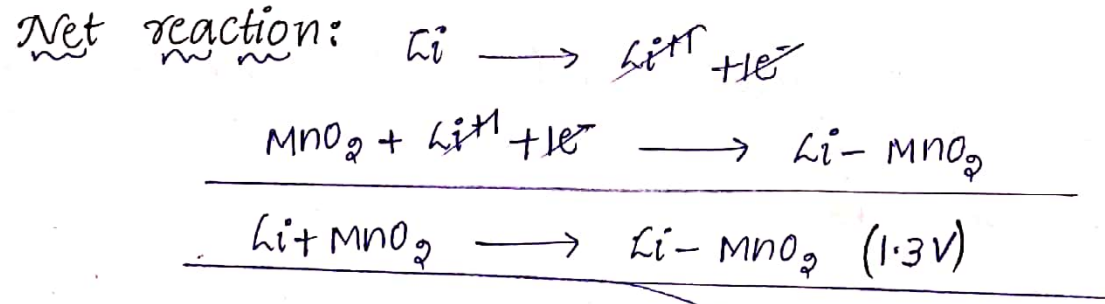 Net reaction: Li ⟶ Li⁺¹ + 1e⁻
MnO₂ + Li⁺¹ + 1e⁻ ⟶ Li – MnO₂
Li + MnO₂ ⟶ Li – MnO₂ (1.3V)